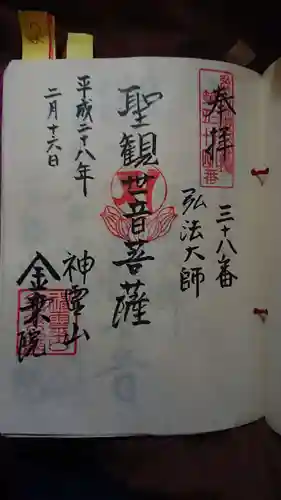 奉拝
三十八番
弘法大師
聖観世音菩薩
神霊山
金乗院
平成二十八年
二月十六日